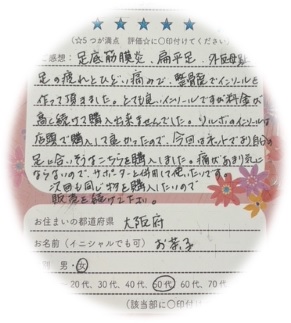 (☆5つが満点 評価☆に〇印付けてください
感想: 足底筋膜炎、扁平足、外反母趾
足の疲れとひどい痛みで、整骨院でインソールを
作って頂きました。とても良いインソールですが料金が
高し続けて購入出来ませんでした。ソルボのインソールは
店頭で購入して良かったので、今回はネットでより自分の
足に合いそうなこちらを購入しました。痛みがあまり気に
ならないので、サポーターと併用して使いたいです。
次回も同じ物を購入したいので
販売を続けて下さい。
お住まいの都道府県 大阪府
お名前(イニシャルでも可)
男・女
20代、30代、40代、60代
(該当部に〇印付け